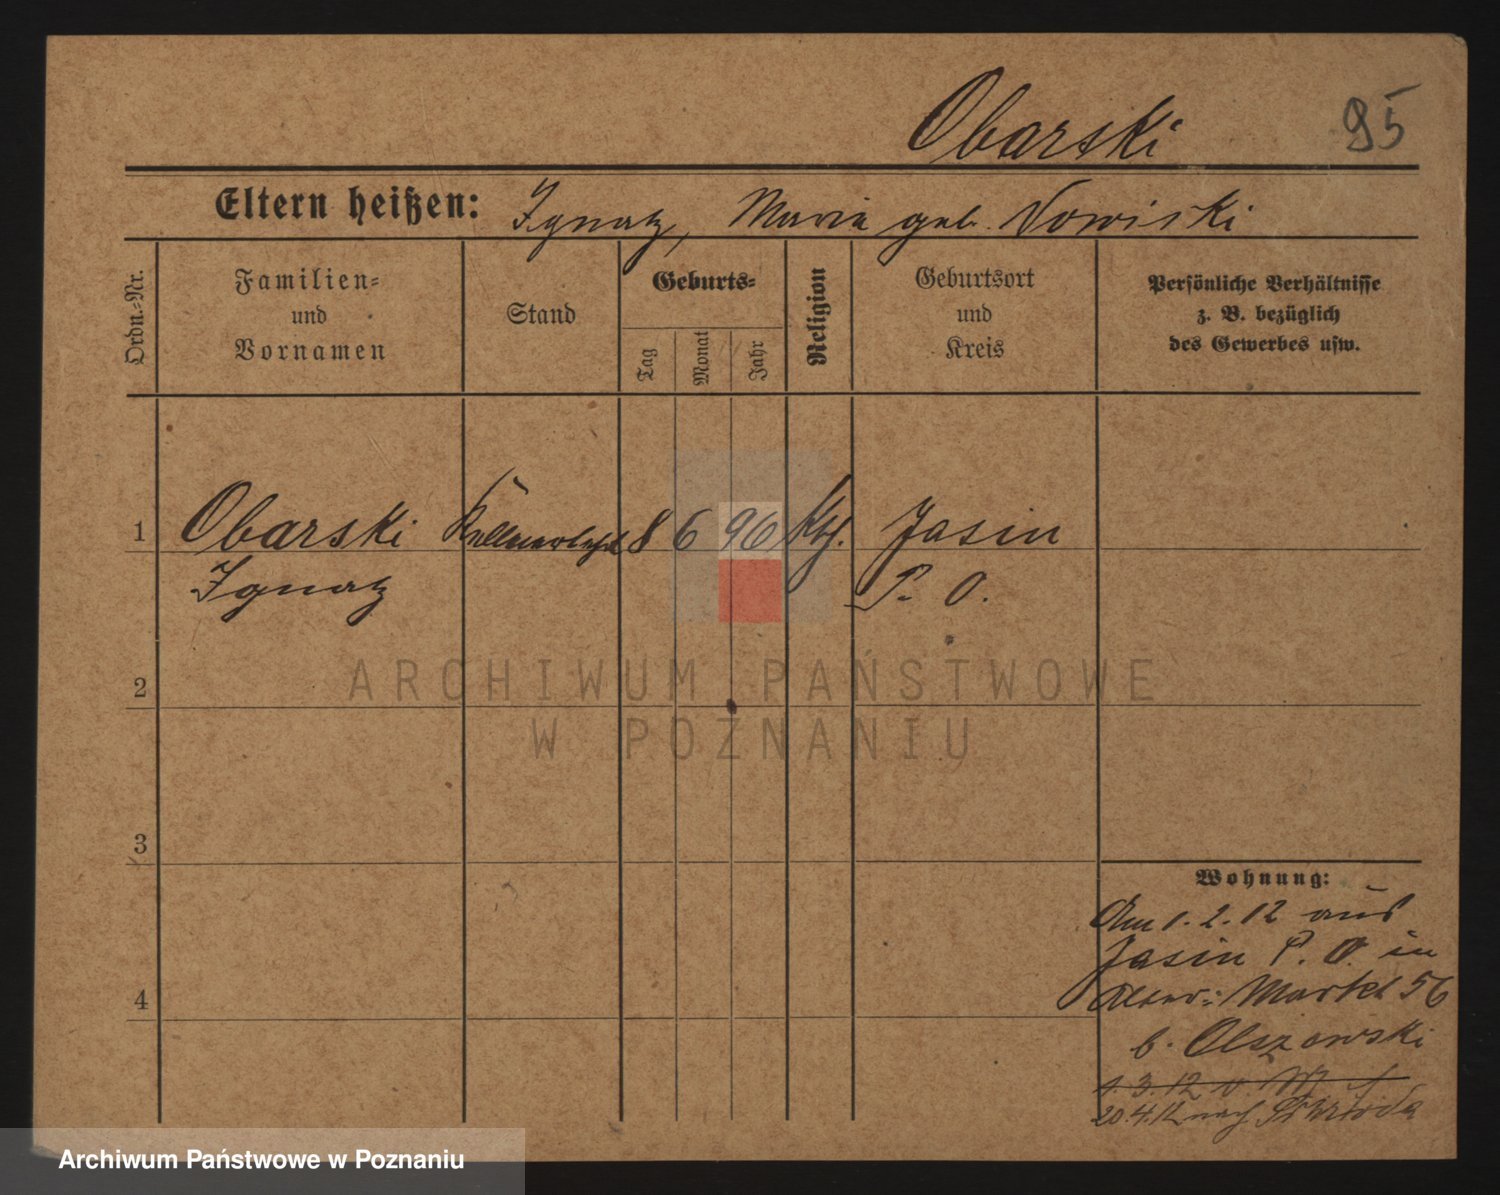 Obarski 95
Eltern heißen: Ignatz, Maria geb. Nowiski
Ordn.-Nr.
Familien-
und
Vornamen
Stand
Geburts-
Tag
Monat
Jahr
Religion
Geburtsort
und
Kreis
Persönliche Verhältnisse
z. B. bezüglich
des Gewerbes usw.
1 Obarski Kellnerlehrl 8 6 96 Kth. Jasin
Ignatz P. O.
2
3
4
Wohnung:
Am 1. 2. 12 aus
Jasin P. O. in
Alter Markt 56
b. Olszewski
1. 3. 12 v.
20. 4. 12 nach Schroda
ARCHIWUM PAŃSTWOWE
W POZNANIU
Archiwum Państwowe w Poznaniu